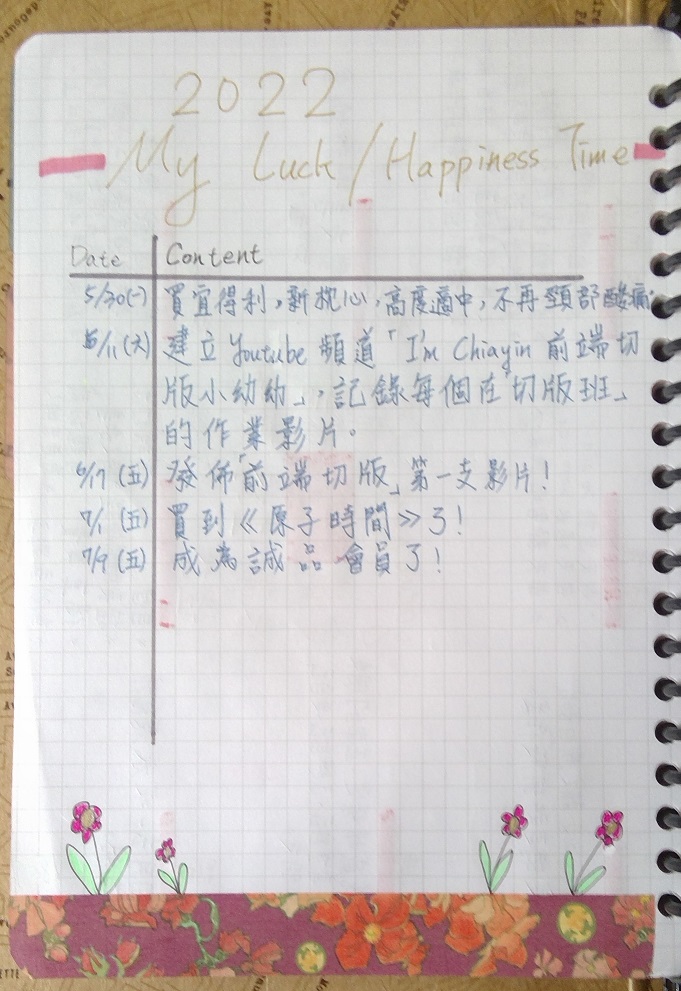 2022
My Luck / Happiness Time
Date Content
5/30(一) 買宜得利,新枕心,高度適中,不再頸部酸痛。
6/11(六) 建立 Youtube 頻道「I'm Chiayin 前端切
版小幼幼」,記錄每個在「切版班」
的作業影片。
6/17 (五) 發佈「前端切版」第一支影片!
7/1 (五) 買到《原子時間》了!
7/9 (五) 成為誠品會員了!